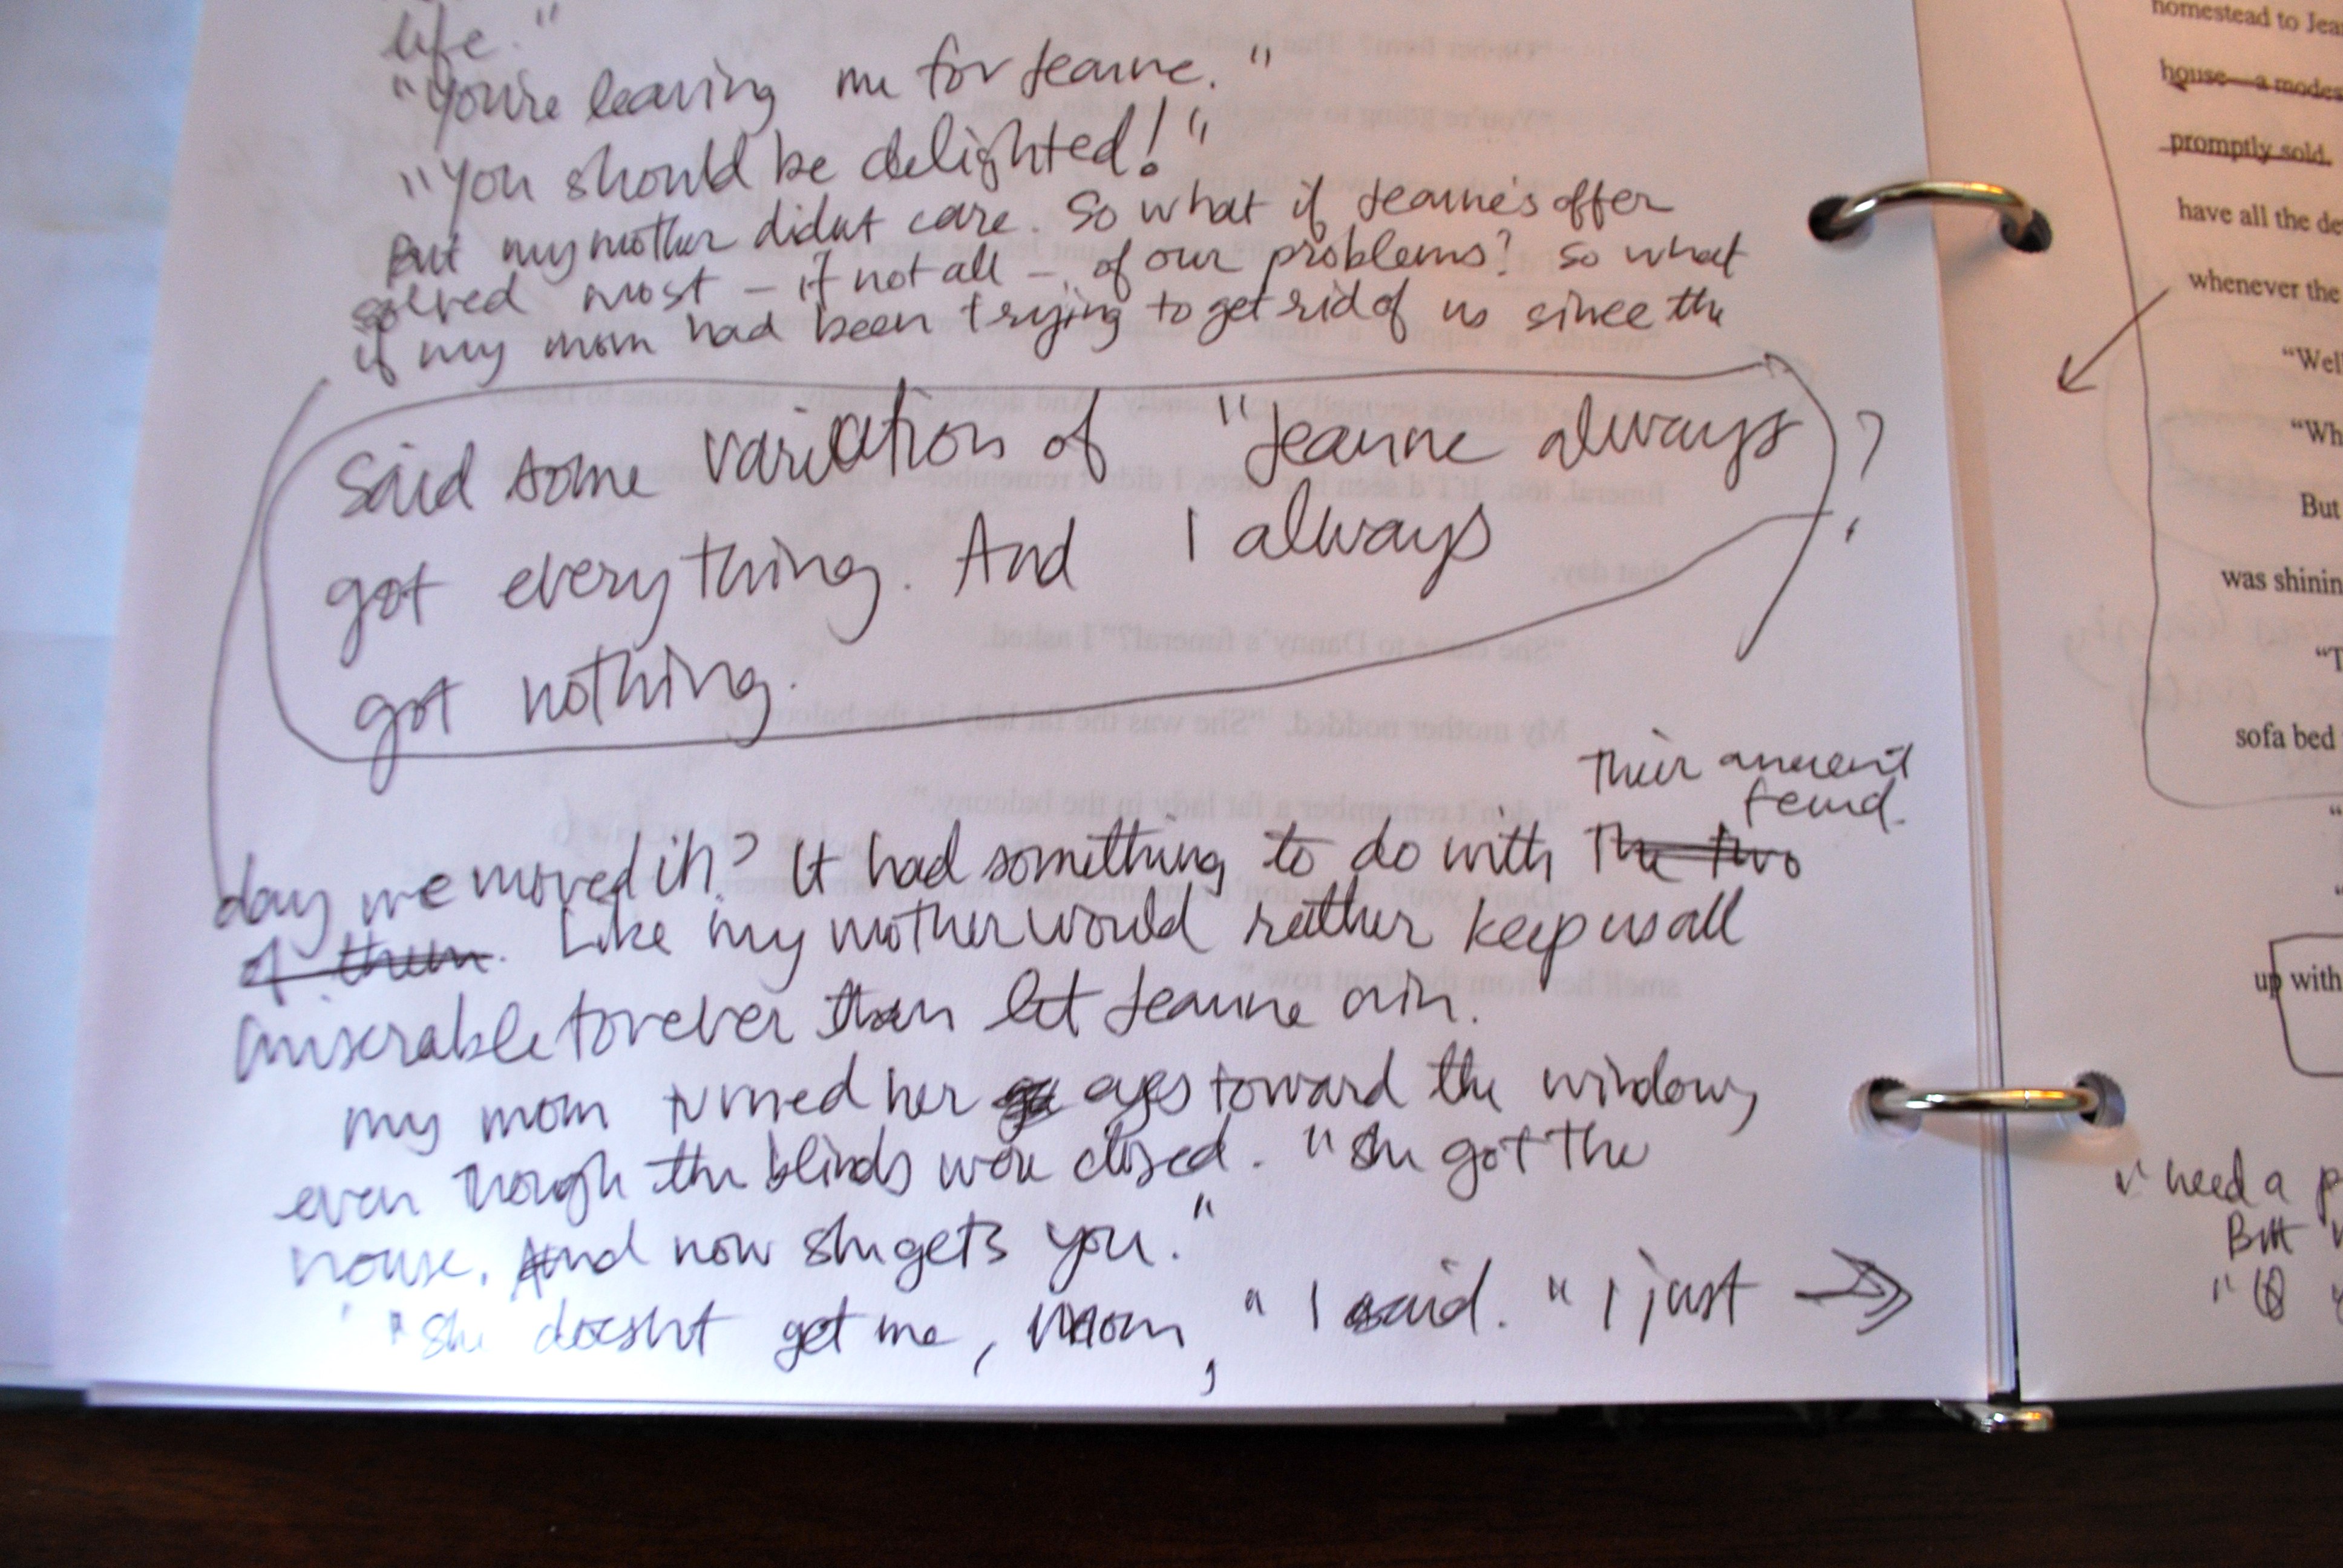 life."
"You're leaving me for Jeanne."
"You should be delighted!"
But my mother didn't care. So what if Jeanne's offer
solved most – if not all – of our problems? So what
if my mom had been trying to get rid of us since the
said some variation of "Jeanne always
got everything. And I always
got nothing.
?
their ancient
feud.
day we moved in? It had something to do with the two
of them. Like my mother would rather keep us all
miserable forever than let Jeanne win.
my mom turned her eyes toward the window,
even though the blinds were closed. "She got the
house. And now she gets you."
"She doesn't get me, Mom," I said. "I just →
homestead to Jea
house—a modes
promptly sold.
have all the de
whenever the
"Wel
"Wh
But
was shinin
"T
sofa bed
up with
need a p
But